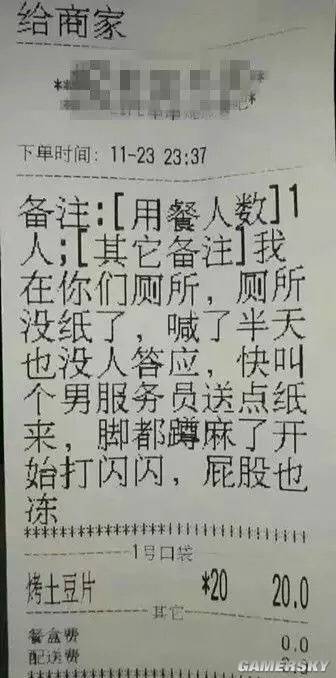 给商家
下单时间: 11-23 23:37
备注:[用餐人数]1
人;[其它备注]我
在你们厕所，厕所
没纸了，喊了半天
也没人答应，快叫
个男服务员送点纸
来，脚都蹲麻了开
始打闪闪，屁股也
冻
1号口袋
烤土豆片 *20 20.0
其它
餐盒费 0.0
配送费
GAMERSKY